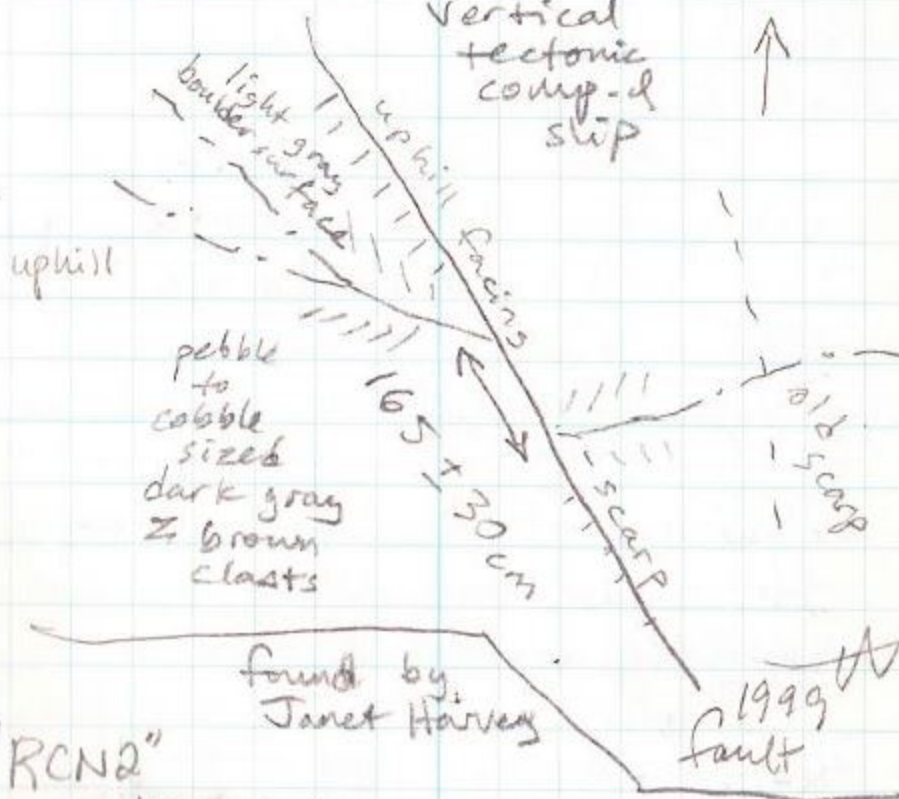 Vertical
tectonic
comp. of
slip
light gray
boulder surface
uphill
facing
scarp
uphill
pebble
to
cobble
sized
dark gray
& brown
clasts
165 ± 30 cm
old scarp
found by
Janet Harvey
1999
fault
RCN2"